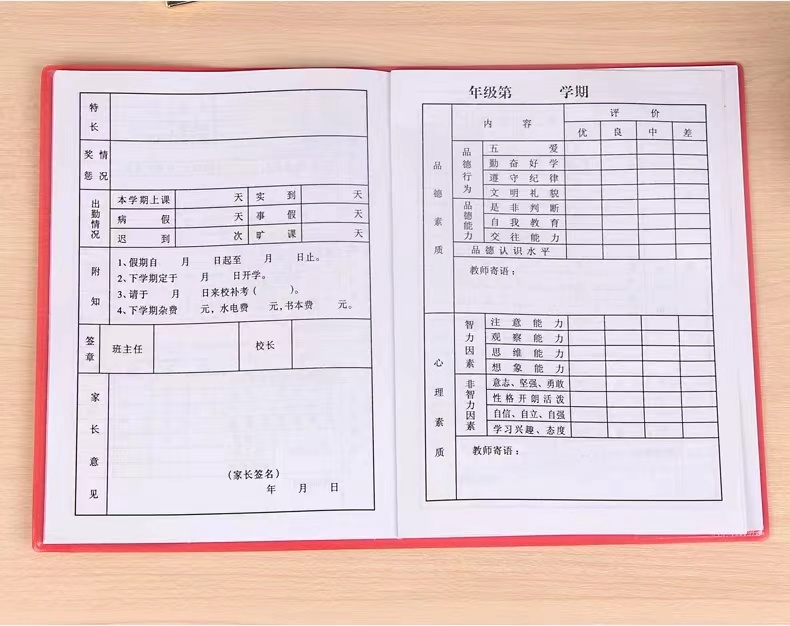 特长
奖惩情况
出勤情况
本学期上课 天 实到 天
病假 天 事假 天
迟到 次 旷课 天
附知
1、假期自 月 日起至 月 日止。
2、下学期定于 月 日开学。
3、请于 月 日来校补考( )。
4、下学期杂费 元,水电费 元,书本费 元。
签章
班主任 校长
家长意见
(家长签名)
年 月 日
年级第 学期
品德素质
内容 评价
优 良 中 差
品德行为
五爱
勤奋好学
遵守纪律
文明礼貌
品德能力
是非判断
自我教育
交往能力
品德认识水平
教师寄语:
心理素质
智力因素
注意能力
观察能力
思维能力
想象能力
非智力因素
意志、坚强、勇敢
性格开朗活泼
自信、自立、自强
学习兴趣、态度
教师寄语: